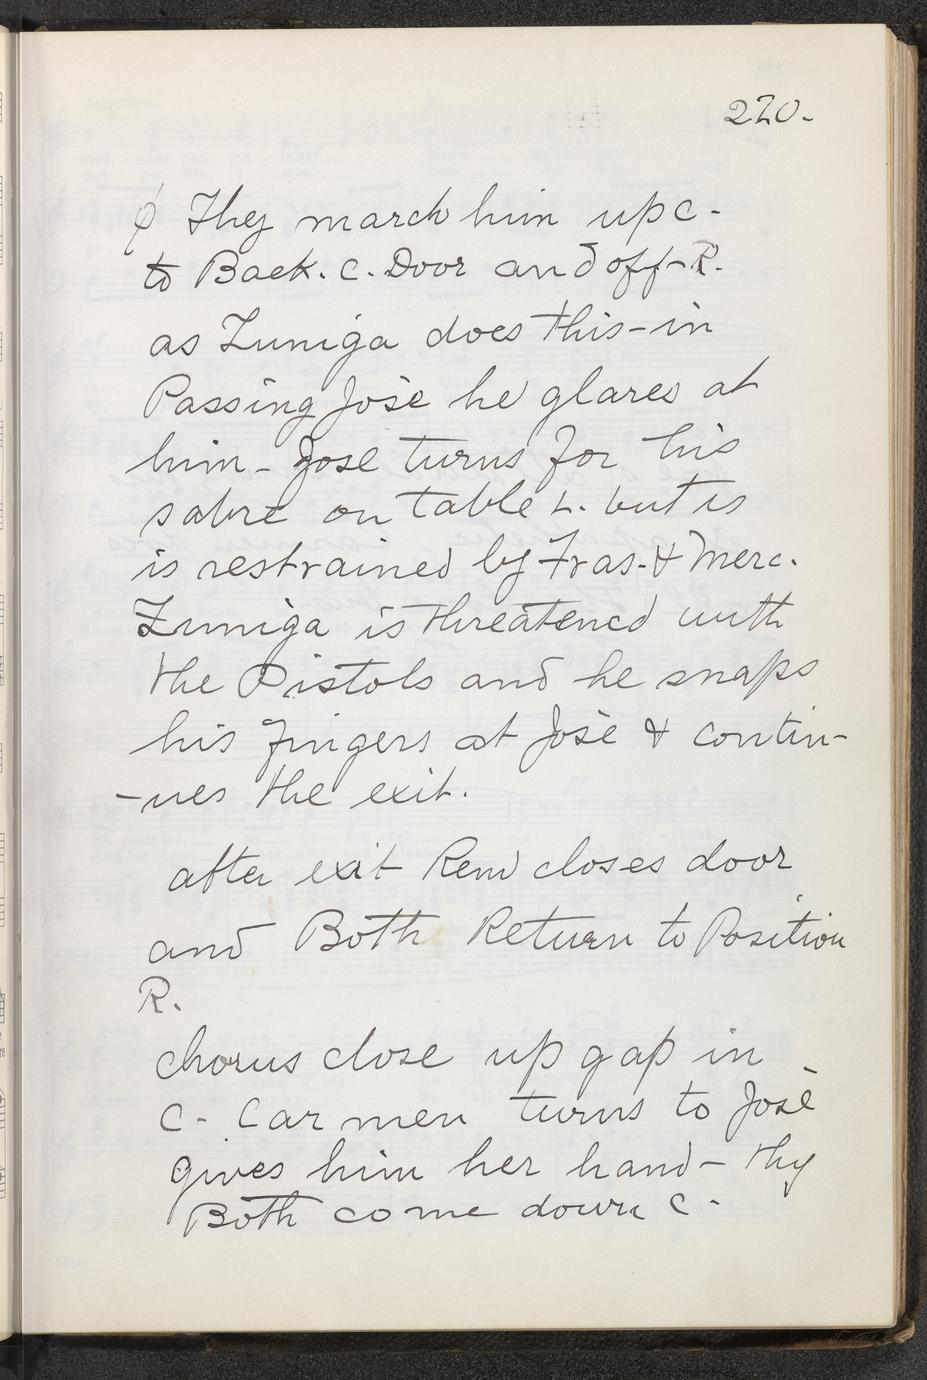 220.
φ They march him up c.
to Back. C. Door and off-R.
as Zuniga does this-in
Passing José he glares at
him - José turns for his
sabre on table L. but is
is restrained by Fras. & Merc.
Zuniga is threatened with
the Pistols and he snaps
his fingers at José & contin-
-ues the exit.
after exit Rem closes door
and Both Return to Position
R.
chorus close up gap in
C. Carmen turns to José
gives him her hand - thy
Both come down C.